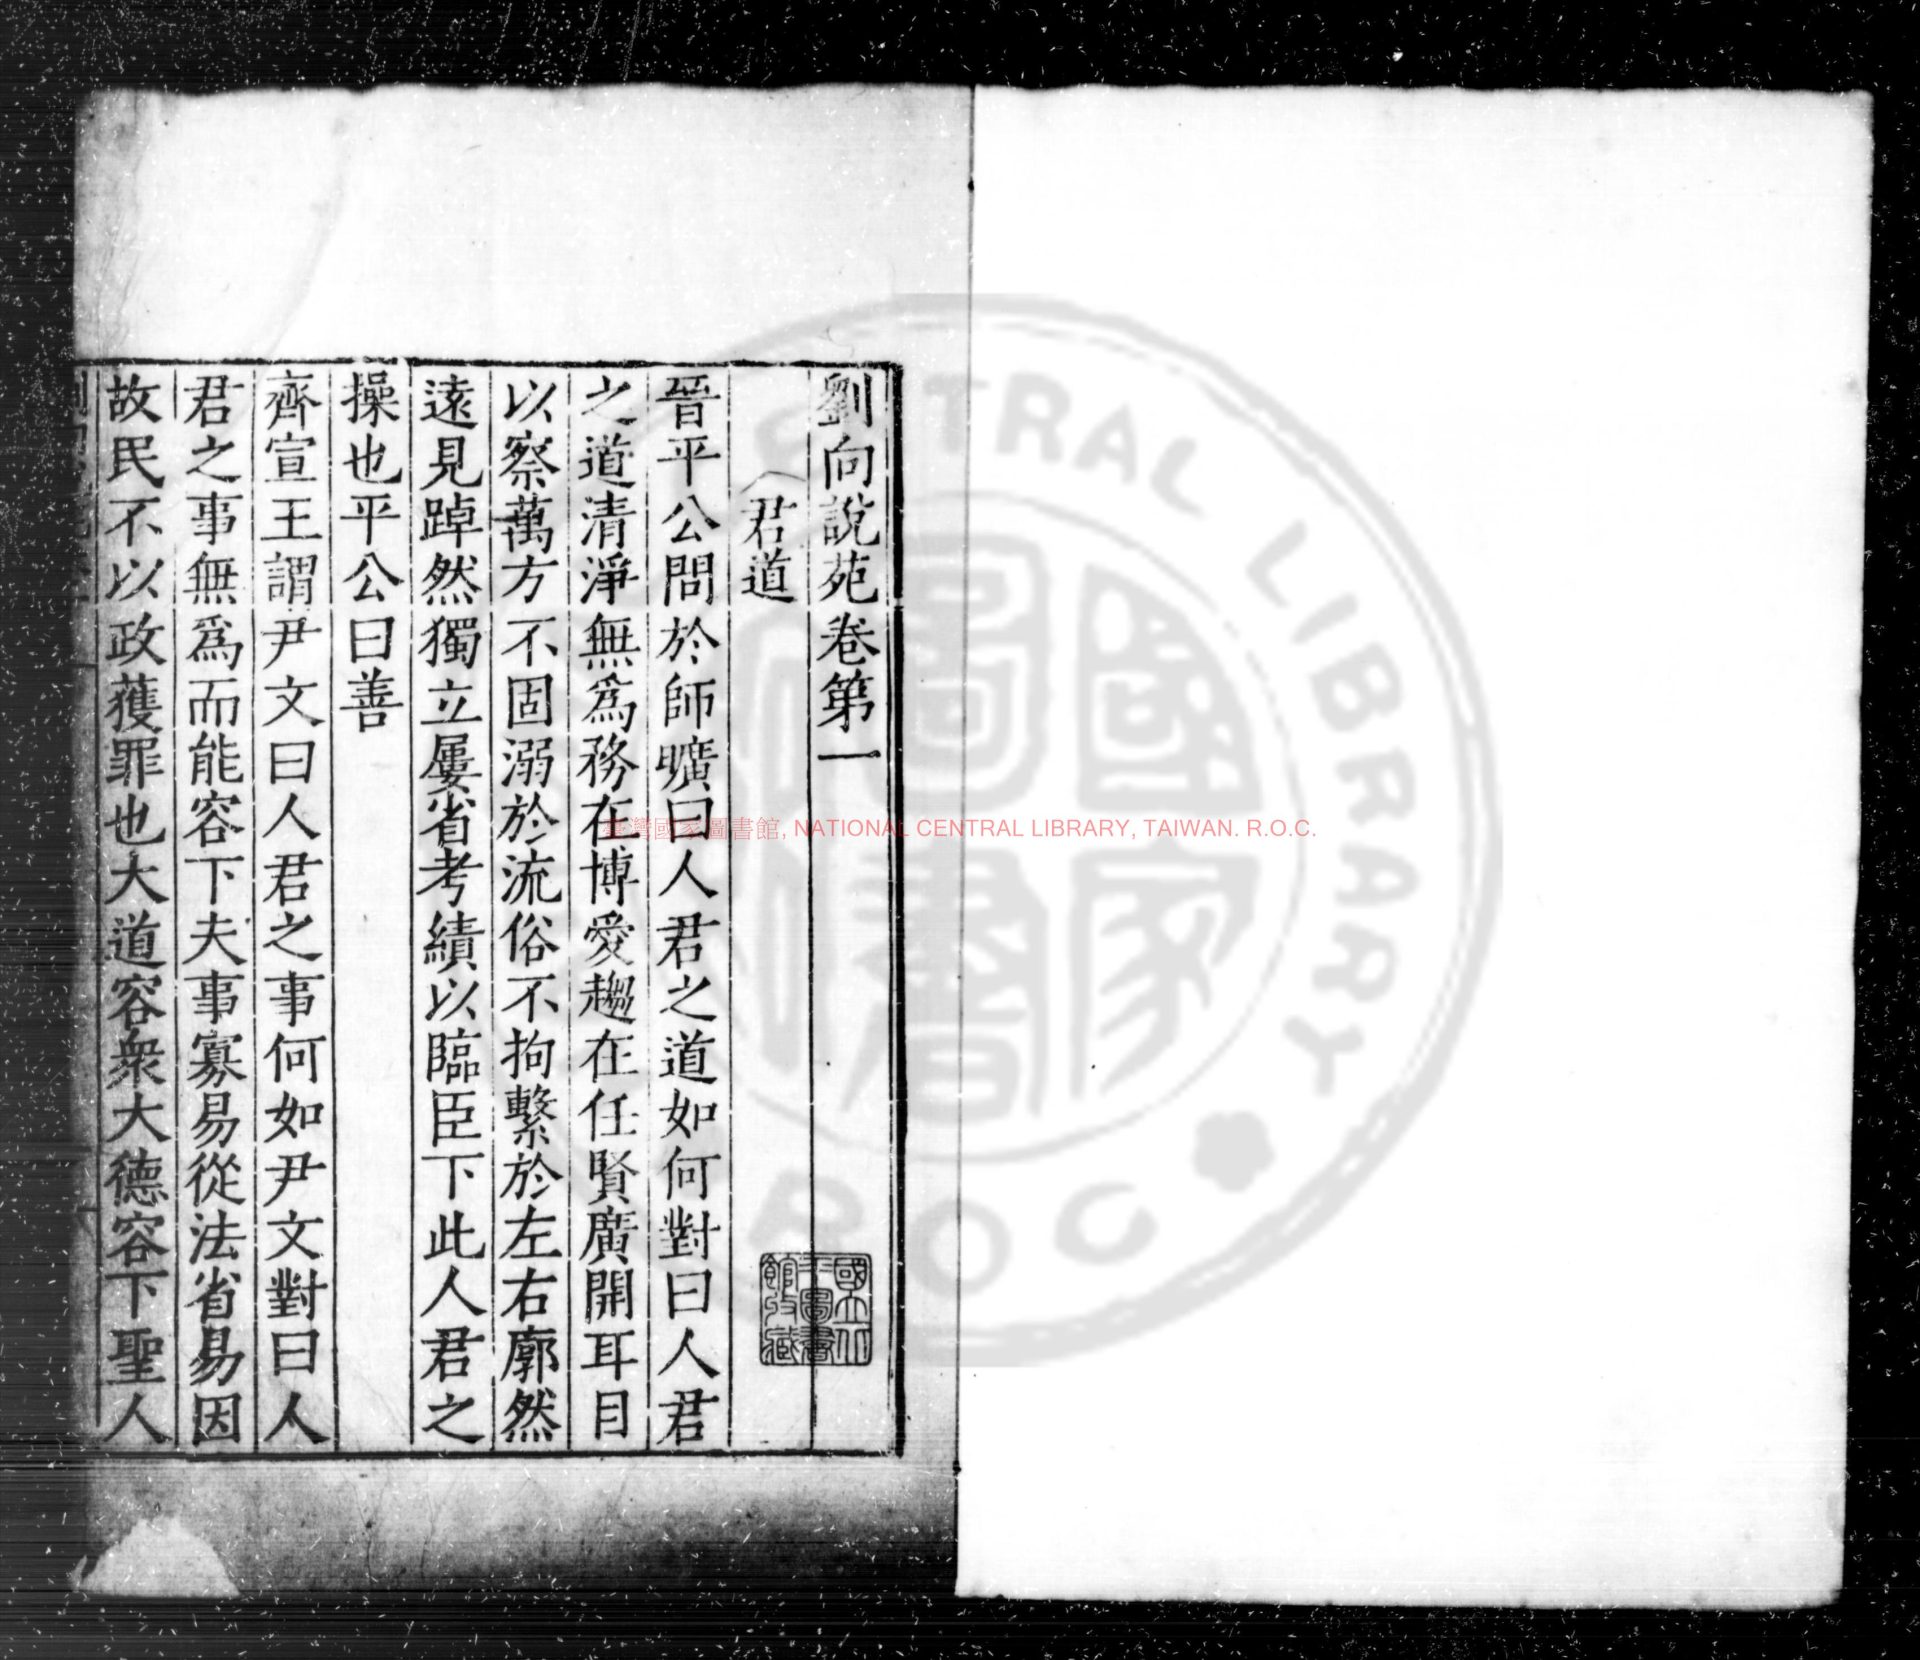 劉向說苑卷第一
君道
晉平公問於師曠曰人君之道如何對曰人君
之道清淨無爲務在博愛趨在任賢廣開耳目
以察萬方不固溺於流俗不拘繫於左右廓然
遠見踔然獨立屢省考績以臨臣下此人君之
操也平公曰善
齊宣王謂尹文曰人君之事何如尹文對曰人
君之事無爲而能容下夫事寡易從法省易因
故民不以政獲罪也大道容衆大德容下聖人
國立北
平圖書
館收藏
臺灣國家圖書館, NATIONAL CENTRAL LIBRARY, TAIWAN. R.O.C.
CENTRAL LIBRARY
R O C
國家圖書